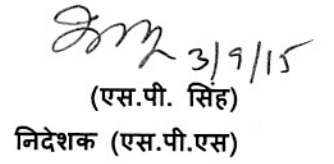 3/9/15
(एस.पी. सिंह)
निदेशक (एस.पी.एस)